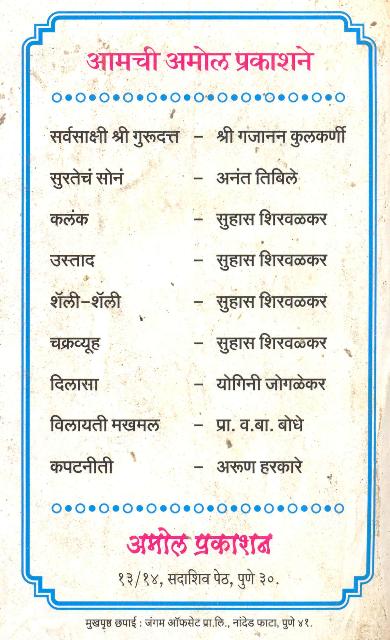 आमची अमोल प्रकाशने
सर्वसाक्षी श्री गुरूदत्त – श्री गजानन कुलकर्णी
सुरतेचं सोनं – अनंत तिबिले
कलंक – सुहास शिरवळकर
उस्ताद – सुहास शिरवळकर
शॅली–शॅली – सुहास शिरवळकर
चक्रव्यूह – सुहास शिरवळकर
दिलासा – योगिनी जोगळेकर
विलायती मखमल – प्रा. व.बा. बोधे
कपटनीती – अरूण हरकारे
अमोल प्रकाशन
१३/१४, सदाशिव पेठ, पुणे ३०.
मुखपृष्ठ छपाई : जंगम ऑफसेट प्रा.लि., नांदेड फाटा, पुणे ४१.